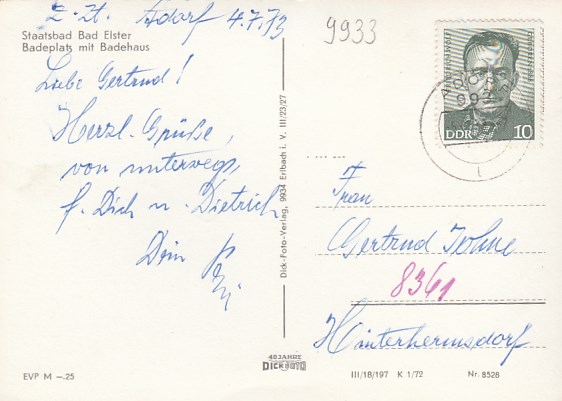 z. Zt. Adorf 4.7.73
9933
Staatsbad Bad Elster
Badeplatz mit Badehaus
Liebe Gertrud!
Herzl. Grüße,
von unterwegs,
f. Dich u. Dietrich
Dein
Dick-Foto-Verlag, 9934 Erlbach i. V. III/23/27
DDR 10
Frau
Gertrud
8361
Hinterhermsdorf
40 JAHRE
DICK FOTO
EVP M –.25
III/18/197 K 1/72
Nr. 8528